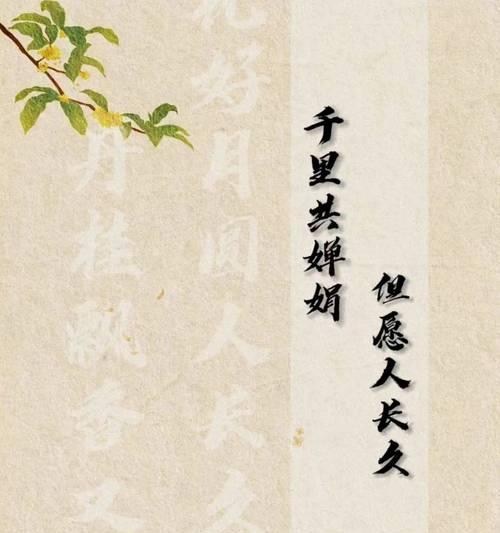 但愿人长久
千里共婵娟
好月圆人长久
丹桂飘香又